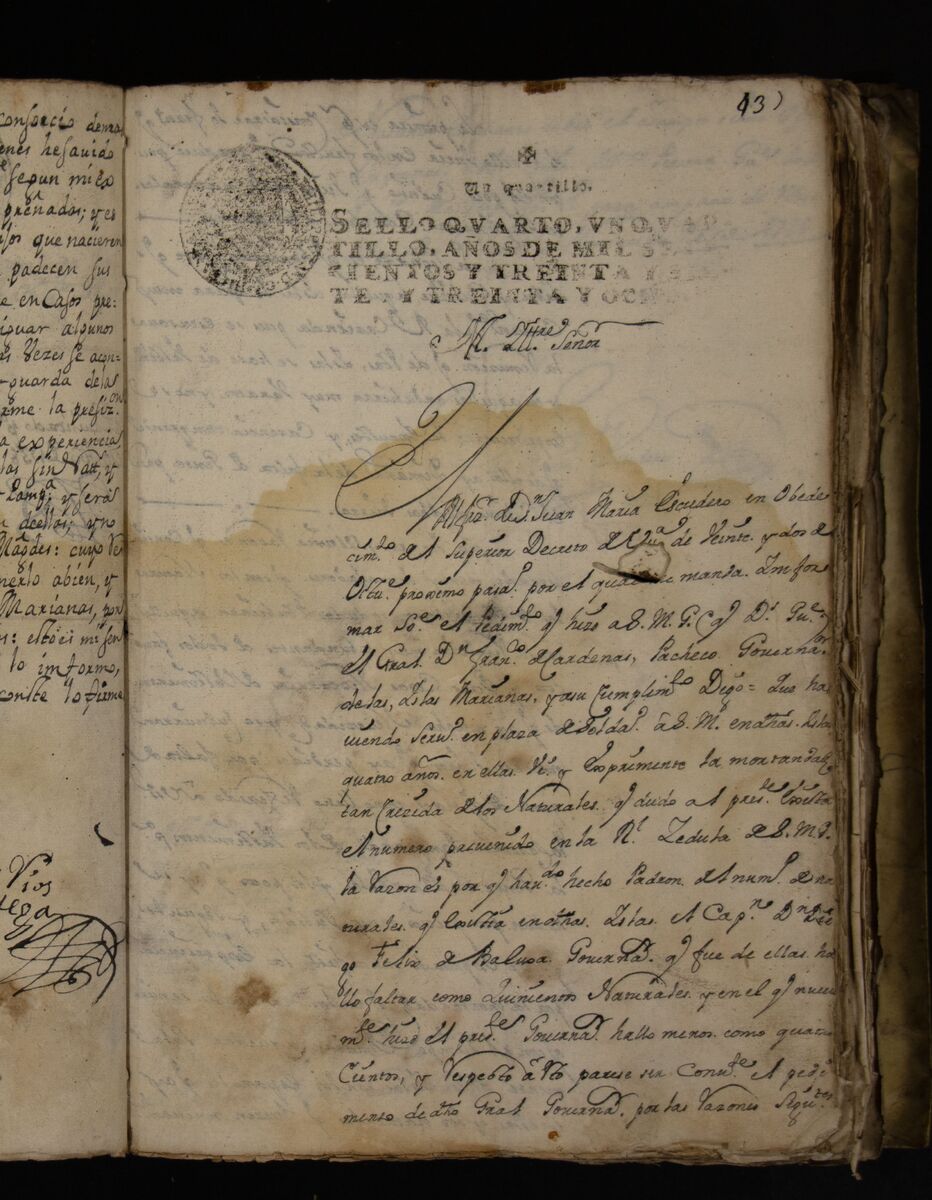 consorcio dema
enes he savido
segun mi ex
preñadas; y es
que nacieren
padecen sus
e en Casos pre:
iguar algunos
Vezes se acon:
guarda de las
rme la presiz.on
a experiencia
y serás
de ellos; y no
cuyo Ve
nerlo abien, y
Marianas, por
s: esto es mi sen
lo imformo,
conste lo firme
Vios
43)
✠
Un quartillo.
SELLO QVARTO, VN QVAR
TILLO, AÑOS DE MIL SE
CIENTOS Y TREINTA Y SIE
TE Y TREINTA Y OCH
M. Ill.tre Señor
Alfz. D.n Juan Maria Escudero en Obede
cim.to del Superior Decreto de de Veinte y dos de
Octu.e proximo pasa.o por el qual se manda Imfor
mar So.e el Pedim.to q hizo a S. M. q D.s Gu.e
el Gral. D.n Fran.co de Cardenas, Pacheco Governa.or
de las, Islas Marianas, y a su Cumplim.to Digo= Que ha
viendo Serv.o en plaza de Solda.o â S. M. en dhas. Islas
quatro años. en ellas. Vi. y Experimente la mortandad
tan Crecida de los Naturales. q dudo al pres.te Exista
el numero prevenido en la R.l Zedula de S. M.
la Razon es por q hav.do hecho Padron del num.o de na
turales. q Exista en dhas. Islas. el Cap.n D.n Die
go Felix de Balusa. Governa.r q fue de ellas. ha
llo faltar como Quinientos Naturales y en el q nueva
m.te hizo el pres.te Governa.r hallo menos. como quatro
Cientos, y Respecto â esto parese ser Conv.te el pedi
mento de dho Gral Governa.r por las Razones Sigu.tes